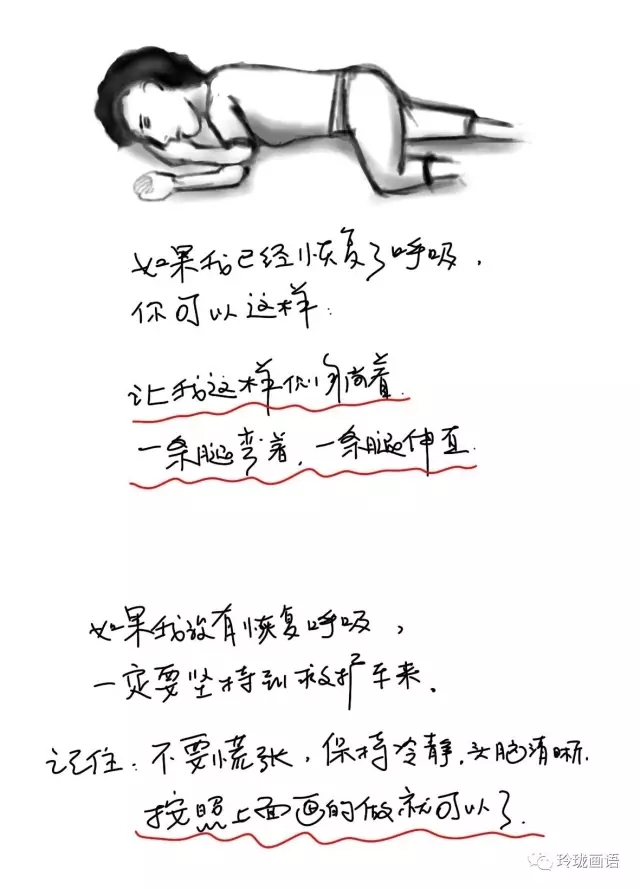 如果我已经恢复了呼吸，
你可以这样：
让我这样侧躺着.
一条腿弯着，一条腿伸直.
如果我没有恢复呼吸，
一定要坚持到救护车来.
记住：不要慌张，保持冷静.头脑清晰.
按照上面画的做就可以了.
玲珑画语